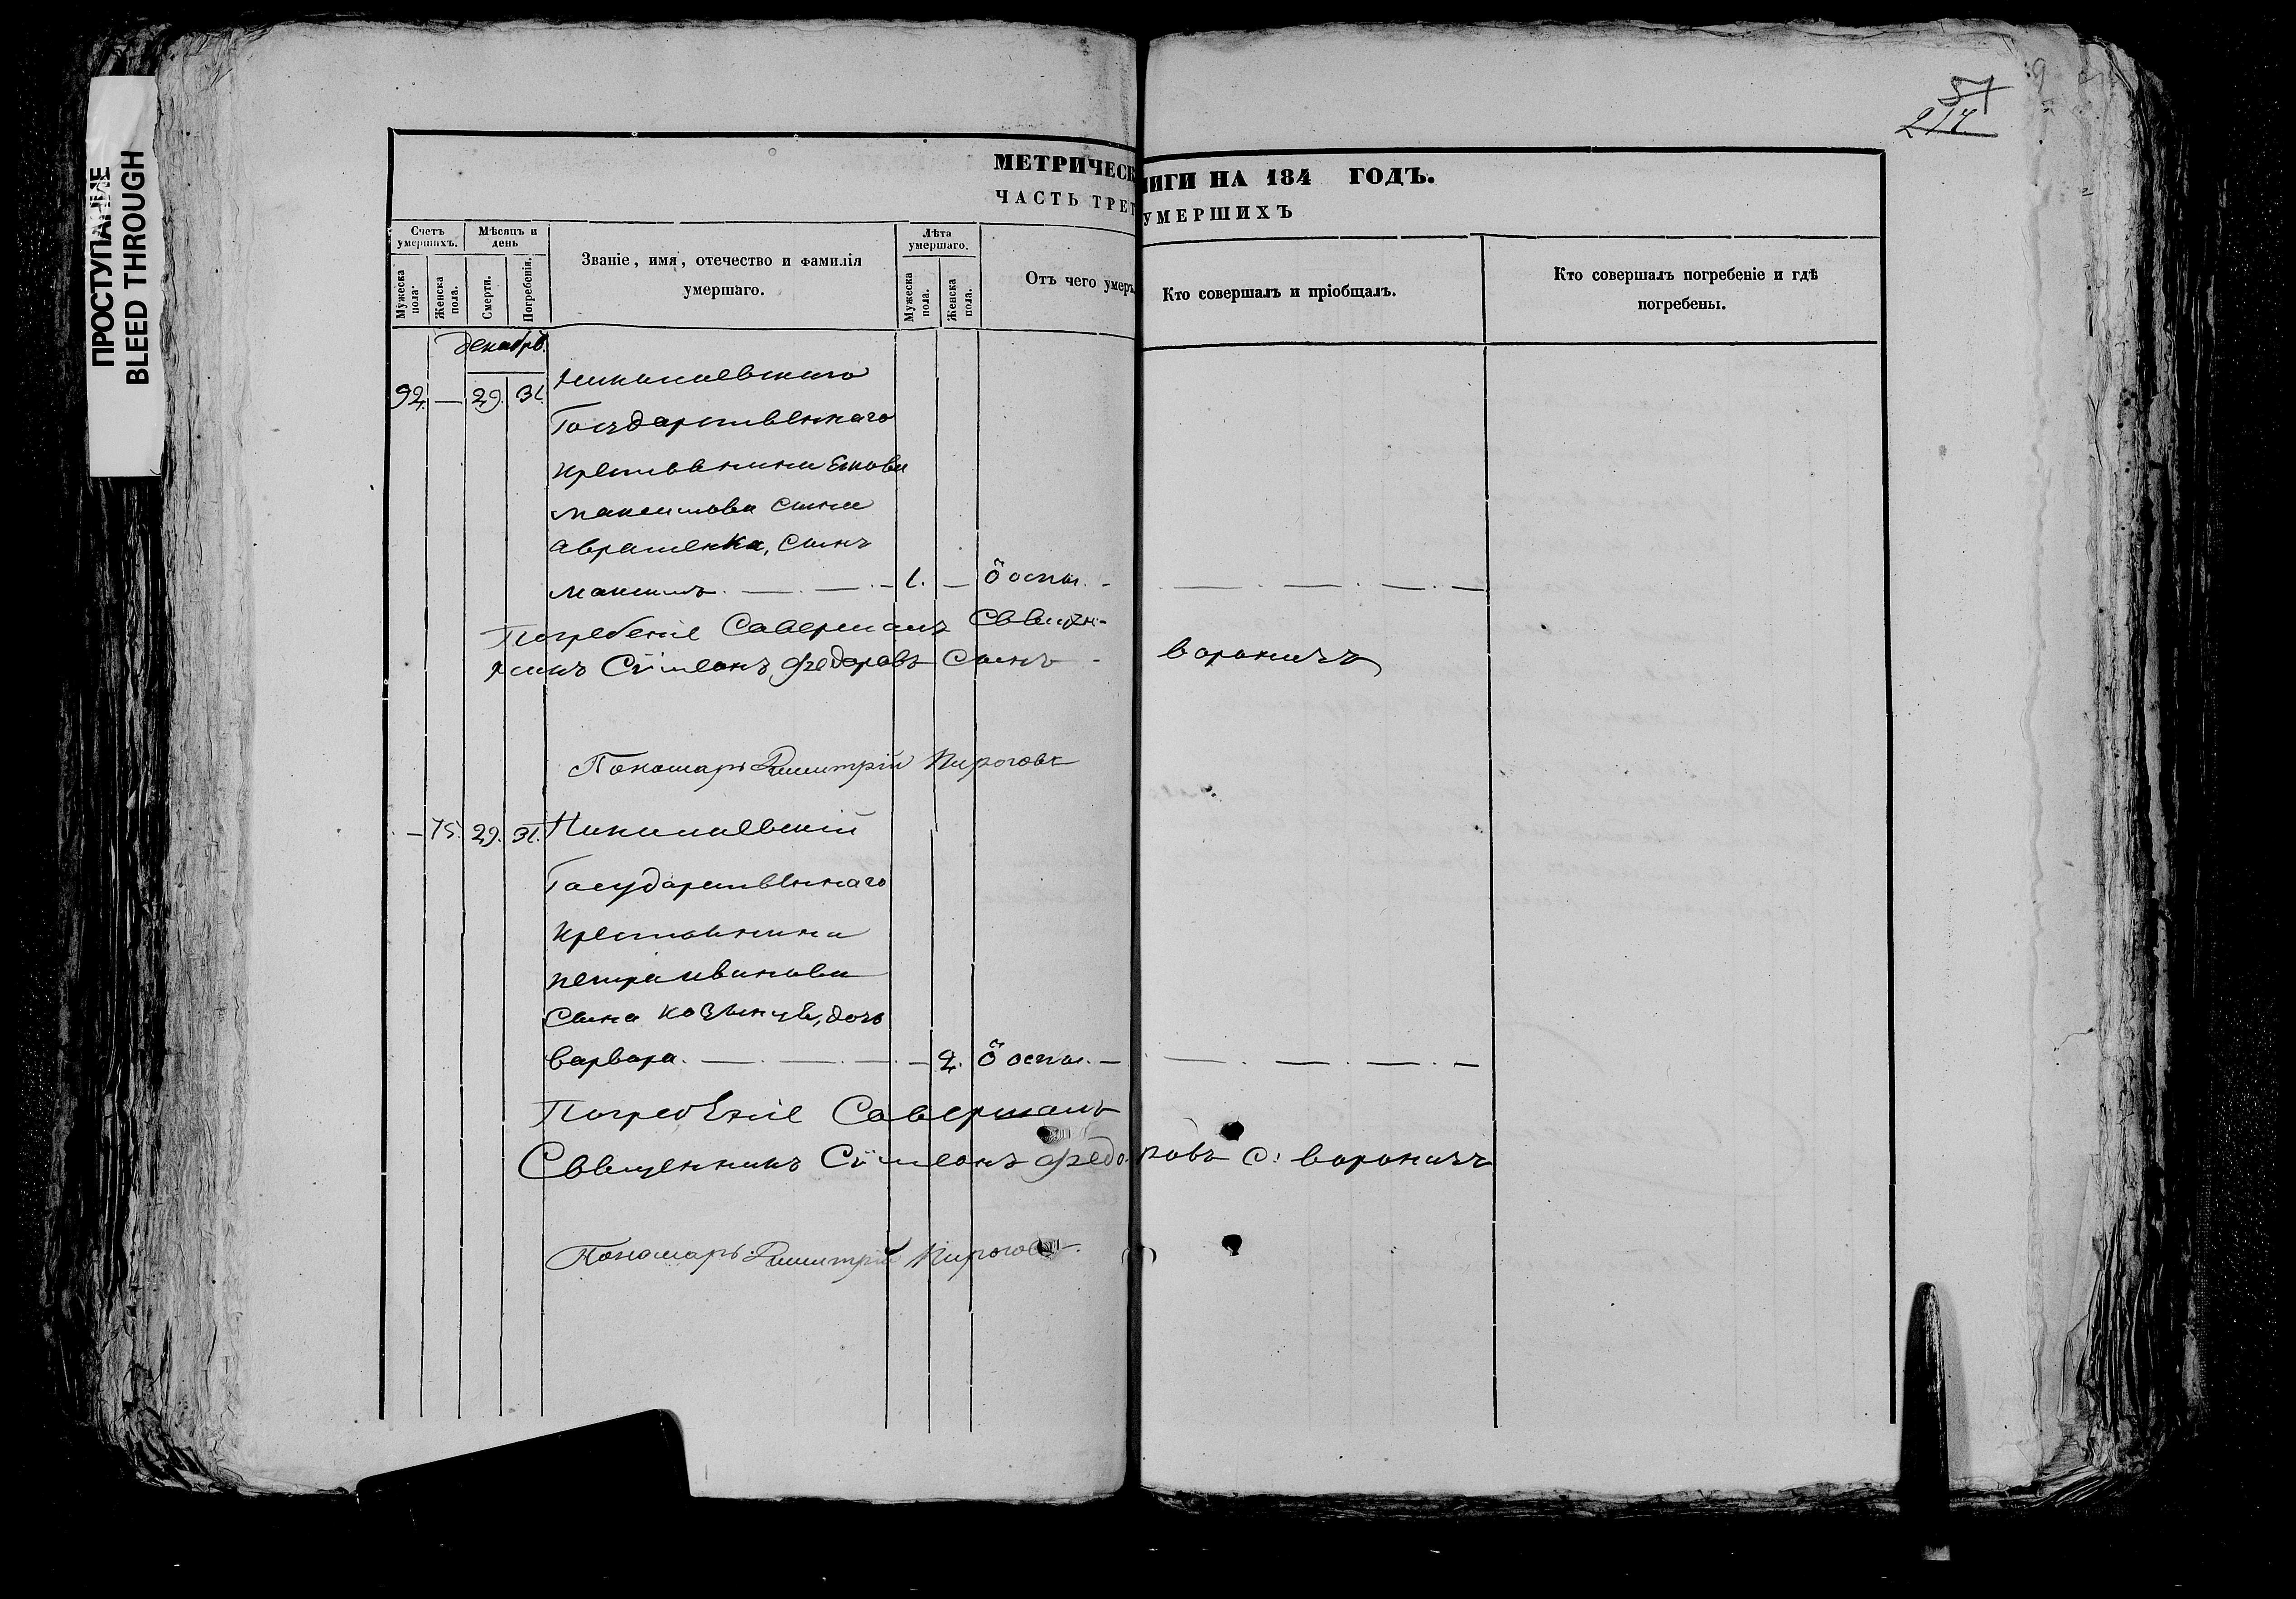 ПРОСТУПАНИЕ
BLEED THROUGH
57
217
МЕТРИЧЕСК ИГИ НА 184 ГОДЪ.
ЧАСТЬ ТРЕТ УМЕРШИХЪ
Счетъ умершихъ.
Мѣсяцъ и день
Званіе, имя, отечество и фамилія умершаго.
Лѣта умершаго.
Отъ чего умеръ
Кто совершалъ и пріобщалъ.
Кто совершалъ погребеніе и гдѣ погребены.
Мужеска пола.
Женска пола.
Смерти.
Погребенія.
Мужеска пола.
Женска пола.
декабрь.
92. — 29. 31. Николаевскаго
Государственнаго
крестьянина
максимова сына
аврамеика, сынъ
максимъ. — 1. — ō оспы. —
Погребеніе Совершалъ Свѣщен-
никъ Сѵмеонъ Федоровъ Сынъ - вороничъ
Пономарь Димитрій Пироговъ
— 75. 29. 31. Николаевскій
Государственнаго
крестьянина
петра иванова
Сына дочь
варвара. — 2. ō оспы. —
Погребѣніе Совершалъ
Свѣщенникъ Сѵмеонъ Федоровъ С: вороничъ
Пономарь Димитрій Пироговъ.